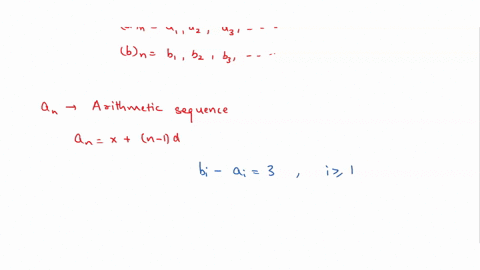 (a)n = a1, a2, a3, -----
(b)n = b1, b2, b3, -----
an → Arithmetic sequence
an = x + (n-1)d
bi - ai = 3 , i ≥ 1